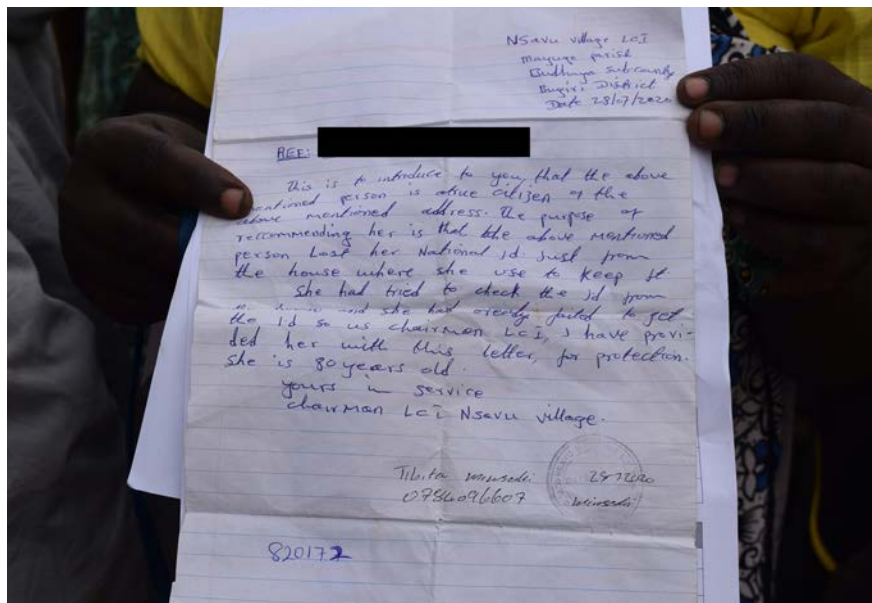 Nsavu village LCI
mayuge parish
Budhaya subcounty
Bugiri District
Date 28/07/2020
REF:
This is to introduce to you, that the above
mentioned person is atrue citizen of the
above mentioned address. The purpose of
reccommending her is that the above mentioned
person Lost her National id just from
the house where she use to keep it
She had tried to check the id from
and she had aready failed to get
the Id so us chairman LCI, I have provi-
ded her with this letter, for protection.
She is 80 years old.
yours in service
chairman LCI Nsavu village.
Tibita
0784096607
820172